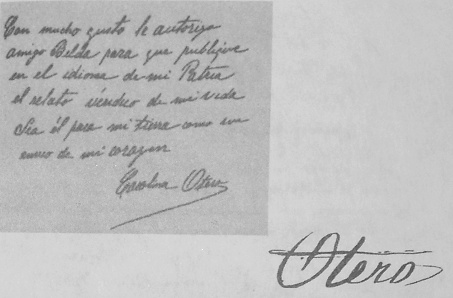 Con mucho gusto le autorizo
amigo Belda para que publique
en el idioma de mi Patria
el relato verídico de mi vida
Sea él para mi tierra como un
de mi corazon
Carolina Otero
Otero